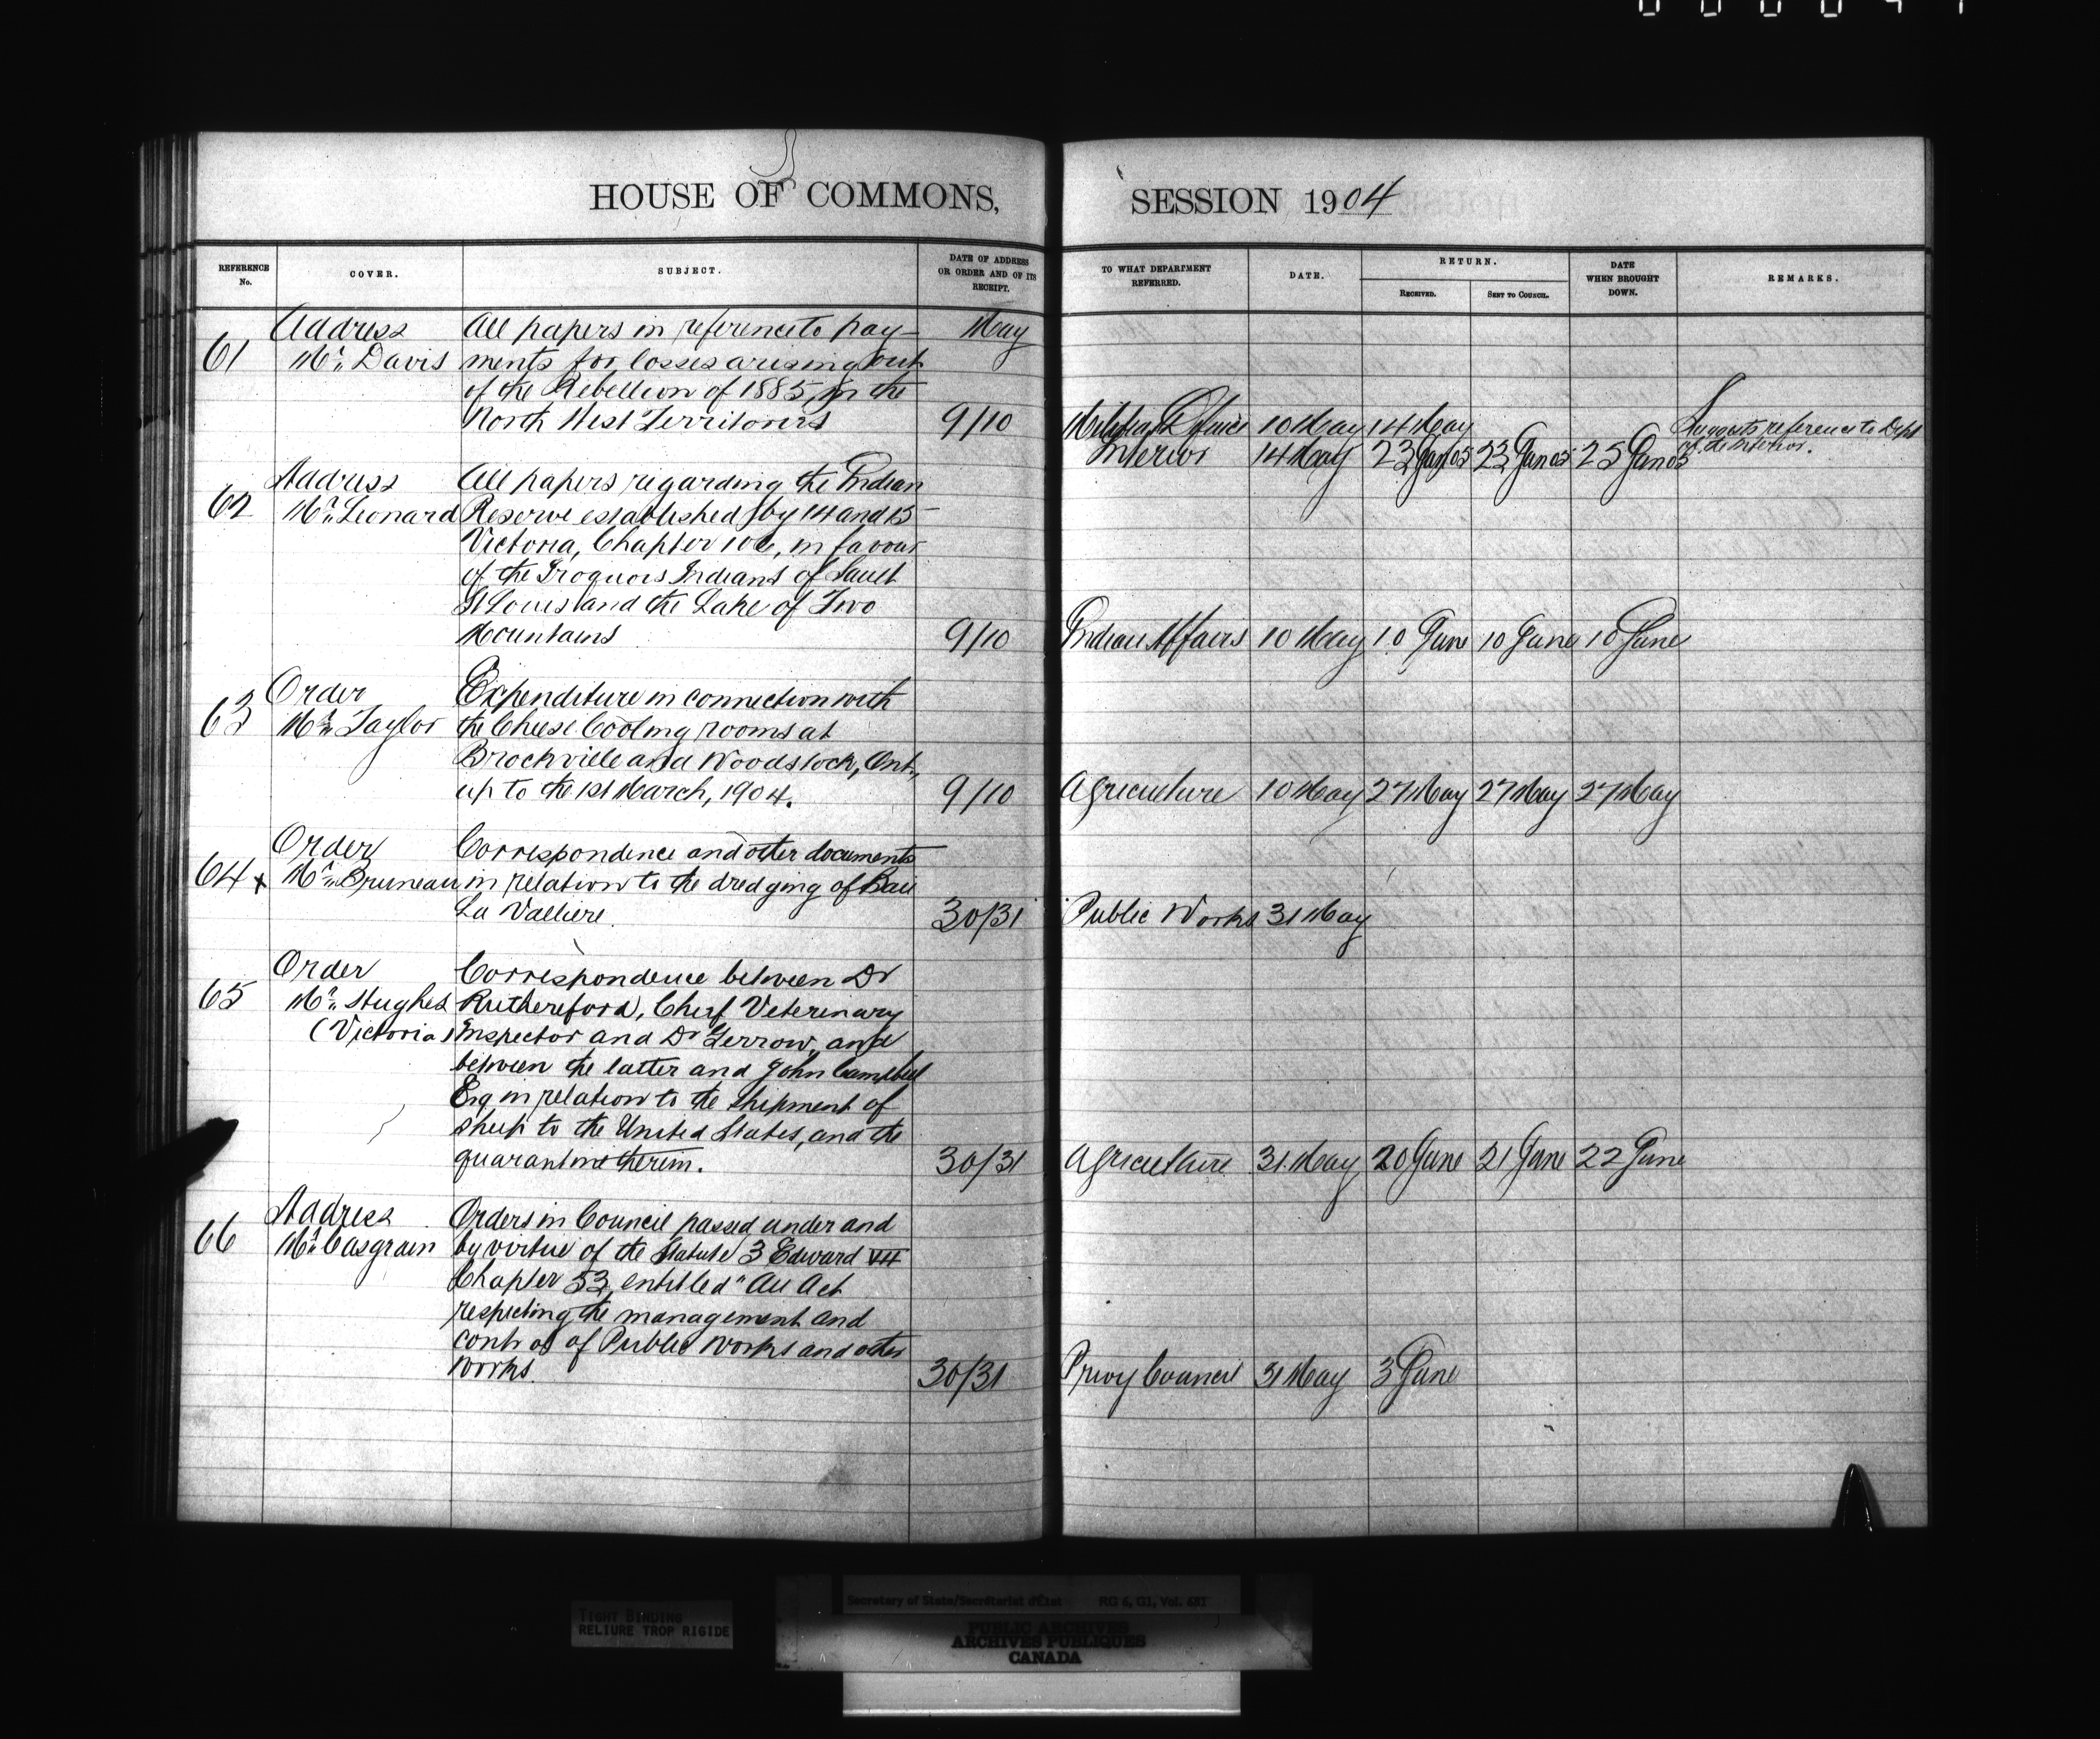 HOUSE OF COMMONS,
SESSION 1904
REFERENCE No.
COVER.
SUBJECT.
DATE OF ADDRESS OR ORDER AND OF ITS RECEIPT.
TO WHAT DEPARTMENT REFERRED.
DATE.
RETURN.
RECEIVED.
SENT TO COUNCIL.
DATE WHEN BROUGHT DOWN.
REMARKS.
Address All papers in reference to pay- May
61 Mr. Davis ments for losses arising out
of the Rebellion of 1885, in the
North West Territories 9/10 Militia & Defence 10 May 14 May Suggests reference to Dept
of the Interior.
Interior 14 May 23 Jan 05 23 Jan 05 25 Jan 05
Address All papers regarding the Indian
62 Mr. Leonard Reserve established by 14 and 15
Victoria, Chapter 106, in favour
of the Iroquois Indians of Sault
St Louis and the Lake of Two
Mountains 9/10 Indian Affairs 10 May 10 June 10 June 10 June
Order Expenditure in connection with
63 Mr. Taylor the Cheese Cooling rooms at
Brockville and Woodstock, Ont.,
up to the 1st March, 1904. 9/10 Agriculture 10 May 27 May 27 May 27 May
Order Correspondence and other documents
64 x Mr. Bruneau in relation to the dredging of Baie
La Valliere 30/31 Public Works 31 May
Order Correspondence between Dr
65 Mr. Hughes Ruthereford, Chief Veterinary
(Victoria) Inspector and Dr Gerrow, and
between the latter and John Campbell
Esq in relation to the shipment of
sheep to the United States, and the
quarantine therein. 30/31 Agriculture 31 May 20 June 21 June 22 June
Address Orders in Council passed under and
66 Mr. Casgrain by virtue of the Statute 3 Edward VII
Chapter 53, entitled "An Act
respecting the management and
control of Public Works and other
works. 30/31 Privy Council 31 May 3 June
TIGHT BINDING
RELIURE TROP RIGIDE
Secretary of State/Secrétariat d'État RG 6, G1, Vol. 681
PUBLIC ARCHIVES
ARCHIVES PUBLIQUES
CANADA